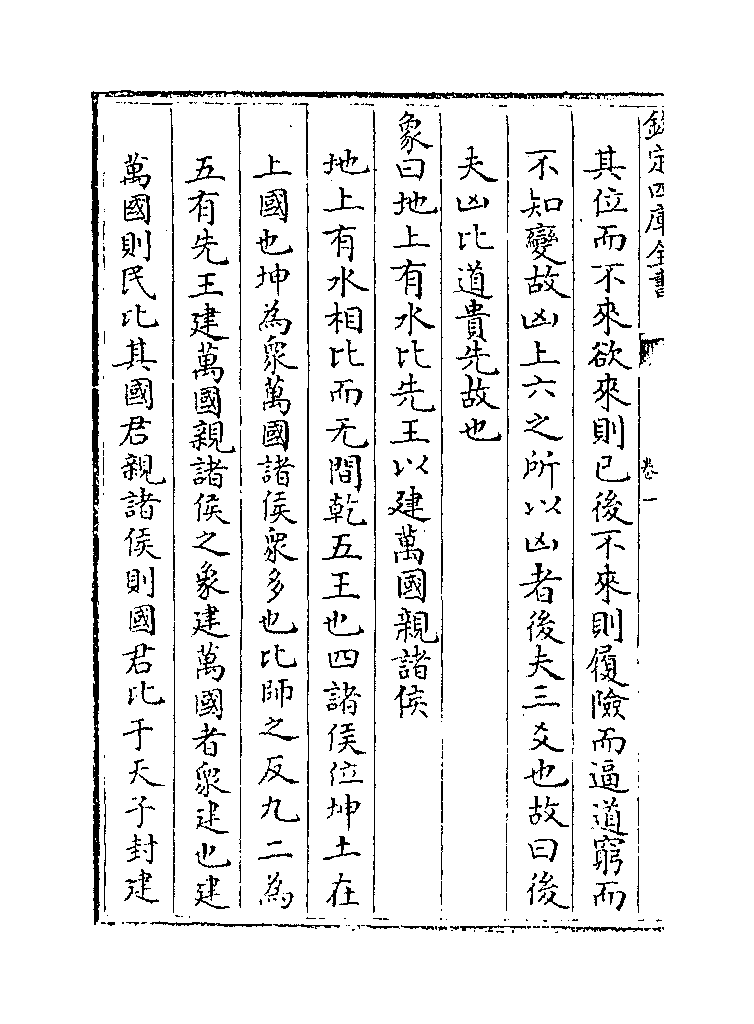 欽定四庫全書 卷一
其位而不來欲來則已後不來則履險而逼道窮而
不知變故凶上六之所以凶者後夫三爻也故曰後
夫凶比道貴先故也
象曰地上有水比先王以建萬國親諸侯
地上有水相比而无間乾五王也四諸侯位坤土在
上國也坤為衆萬國諸侯衆多也比師之反九二為
五有先王建萬國親諸侯之象建萬國者衆建也建
萬國則民比其國君親諸侯則國君比于天子封建